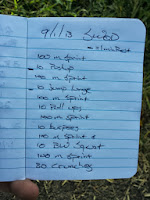 9/1/13
100 m Sprint
10 Pushup
100 m Sprint
10 Jump Lunge
100 m Sprint
10 Pull ups
100 m Sprint
10 burpees
100 m Sprint
10 BW Squat
100 m Sprint
30 Crunches